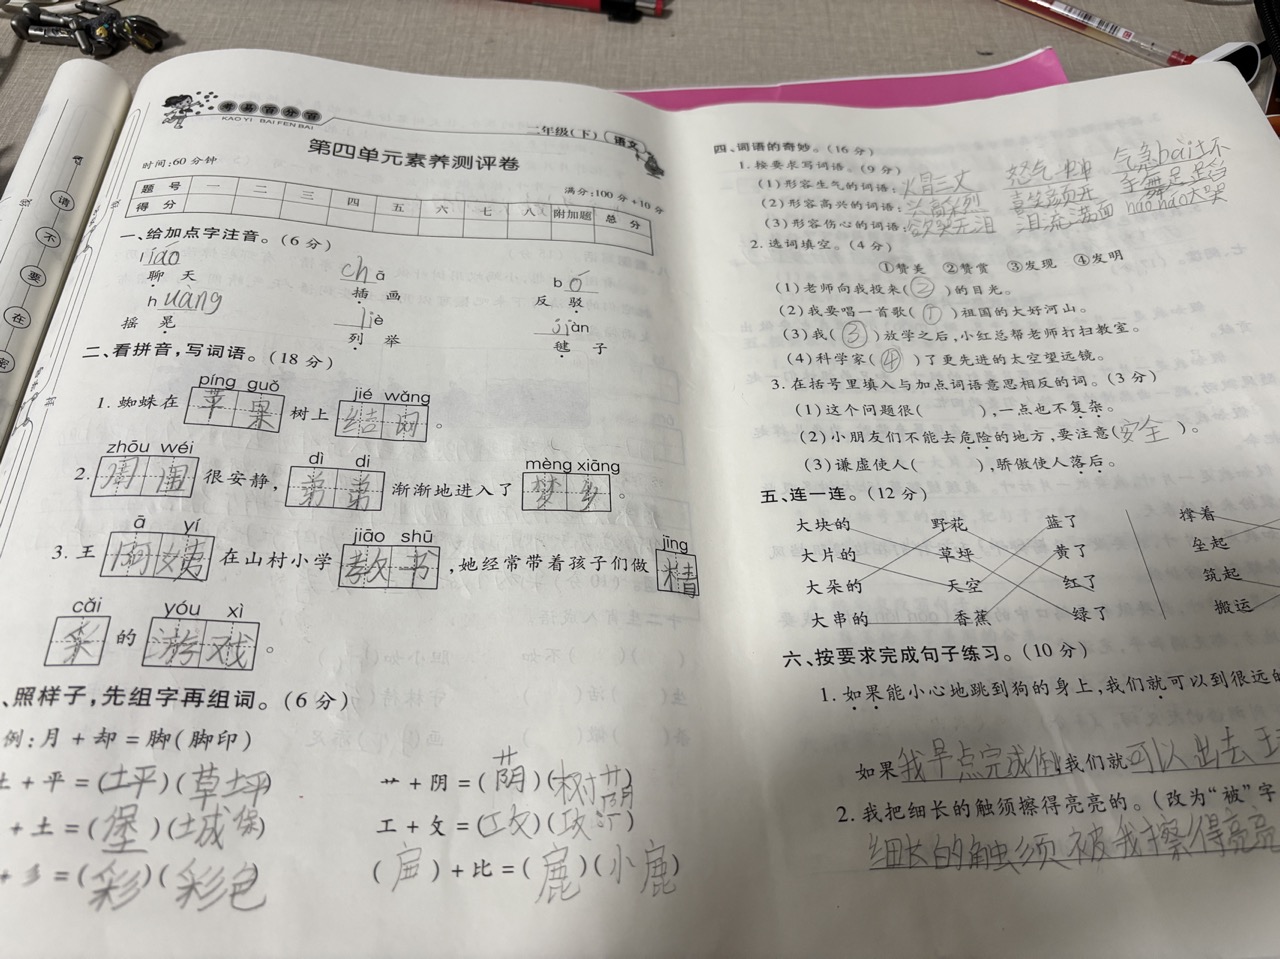 考易百分百
KAO YI BAI FEN BAI
二年级(下) 语文
第四单元素养测评卷
时间:60分钟
满分:100分+10分
题 号 一 二 三 四 五 六 七 八 附加题 总 分
得 分
请不要在密
一、给加点字注音。(6分)
liáo chā bó
聊 天 插 画 反 驳
huàng liè jiàn
摇 晃 列 举 毽 子
二、看拼音,写词语。(18分)
píng guǒ jié wǎng
1. 蜘蛛在 苹果 树上 结网 。
zhōu wéi dì di mèng xiāng
2. 周围 很安静, 弟弟 渐渐地进入了 梦乡 。
ā yí jiāo shū jīng
3. 王 阿姨 在山村小学 教书 ,她经常带着孩子们做 精
cǎi yóu xì
彩 的 游戏 。
、照样子,先组字再组词。(6分)
例:月+却=脚(脚印)
土+平=(坪)(草坪) 艹+阴=(荫)(树荫)
+土=(堡)(城保) 工+攵=(攻)(攻
+彡=(彩)(彩色) ( )+比=(鹿)(小鹿)
四、词语的奇妙。(16分)
1. 按要求写词语。(9分)
(1)形容生气的词语: 火冒三丈 怒气冲冲 气急bài坏
(2)形容高兴的词语: 兴高采烈 喜笑颜开 手舞足蹈
(3)形容伤心的词语: 欲哭无泪 泪流满面 háo háo大哭
2. 选词填空。(4分)
①赞美 ②赞赏 ③发现 ④发明
(1)老师向我投来( ② )的目光。
(2)我要唱一首歌( ① )祖国的大好河山。
(3)我( ③ )放学之后,小红总帮老师打扫教室。
(4)科学家( ④ )了更先进的太空望远镜。
3. 在括号里填入与加点词语意思相反的词。(3分)
(1)这个问题很( ),一点也不复杂。
(2)小朋友们不能去危险的地方,要注意(安全)。
(3)谦虚使人( ),骄傲使人落后。
五、连一连。(12分)
大块的 野花 蓝了 撑着
大片的 草坪 黄了 垒起
大朵的 天空 红了 筑起
大串的 香蕉 绿了 搬运
六、按要求完成句子练习。(10分)
1. 如果能小心地跳到狗的身上,我们就可以到很远的
如果我早点完成作业,我们就可以出去玩
2. 我把细长的触须擦得亮亮的。(改为“被”字
细长的触须被我擦得亮亮